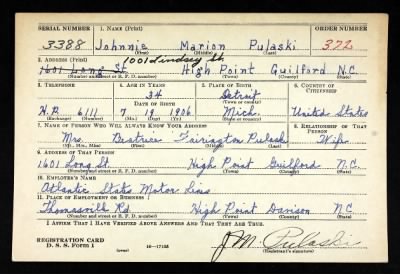 SERIAL NUMBER 1. NAME (Print) ORDER NUMBER
3388 Johnnie Marion Pulaski 372
(First) (Middle) (Last)
2. ADDRESS (Print) 1001 Lindsey St.
1601 Long St. High Point Guilford N.C.
(Number and street or R. F. D. number) (Town) (County) (State)
3. TELEPHONE 4. AGE IN YEARS 5. PLACE OF BIRTH 6. COUNTRY OF CITIZENSHIP
34 Detroit
DATE OF BIRTH (Town or county)
H.P. 6111 7 1906 Mich. United States
(Exchange) (Number) (Mo.) (Day) (Yr.) (State or country)
7. NAME OF PERSON WHO WILL ALWAYS KNOW YOUR ADDRESS 8. RELATIONSHIP OF THAT PERSON
Mrs. Beatrice Pulaski Wife
(Mr., Mrs., Miss) (First) (Middle) (Last)
9. ADDRESS OF THAT PERSON
1601 Long St. High Point Guilford N.C.
(Number and street or R. F. D. number) (Town) (County) (State)
10. EMPLOYER'S NAME
Atlantic States Motor Lines
11. PLACE OF EMPLOYMENT OR BUSINESS
Thomasville Rd. High Point Davison N.C.
(Number and street or R. F. D. number) (Town) (County) (State)
I AFFIRM THAT I HAVE VERIFIED ABOVE ANSWERS AND THAT THEY ARE TRUE.
REGISTRATION CARD J M. Pulaski
D. S. S. FORM 1 (over) 16—17105 (Registrant's signature)